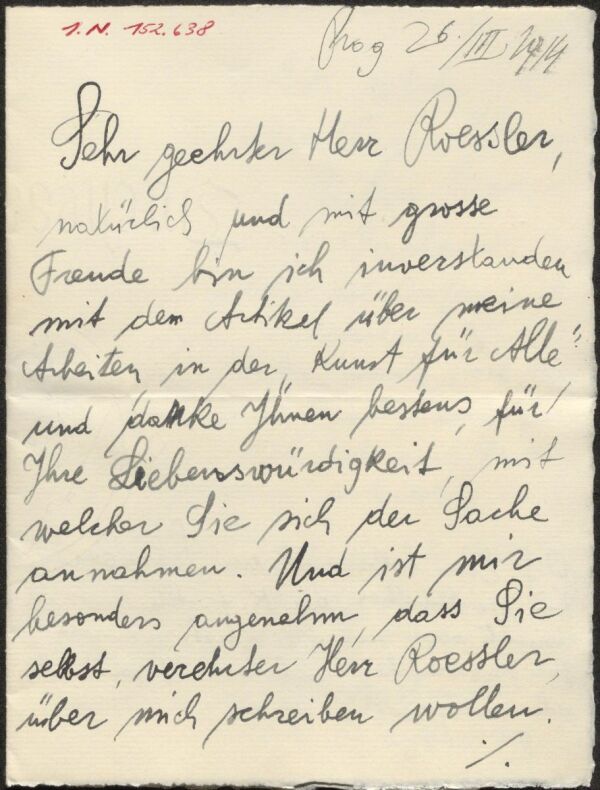 I. N. 152.638
Prag 26./III 1914
Sehr geehrter Herr Roessler,
natürlich und mit grosse
Freude bin ich inverstanden
mit dem Artikel über meine
Arbeiten in der „Kunst für Alle"
und danke Ihnen bestens, für
Ihre Liebenswürdigkeit, mit
welcher Sie sich der Sache
annahmen. Und ist mir
besonders angenehm, dass Sie
selbst, verehrter Herr Roessler,
über mich schreiben wollen.
./.